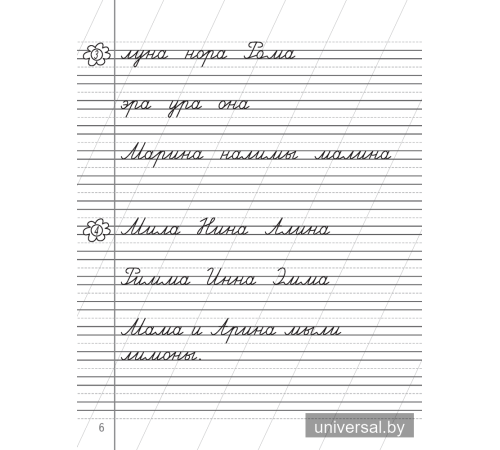 3
луна нора Рома
эра ура она
Марина налимы малина
4
Мила Нина Алина
Римма Инна Зима
Мама и Арина мыли
лимоны.
6
universal.by